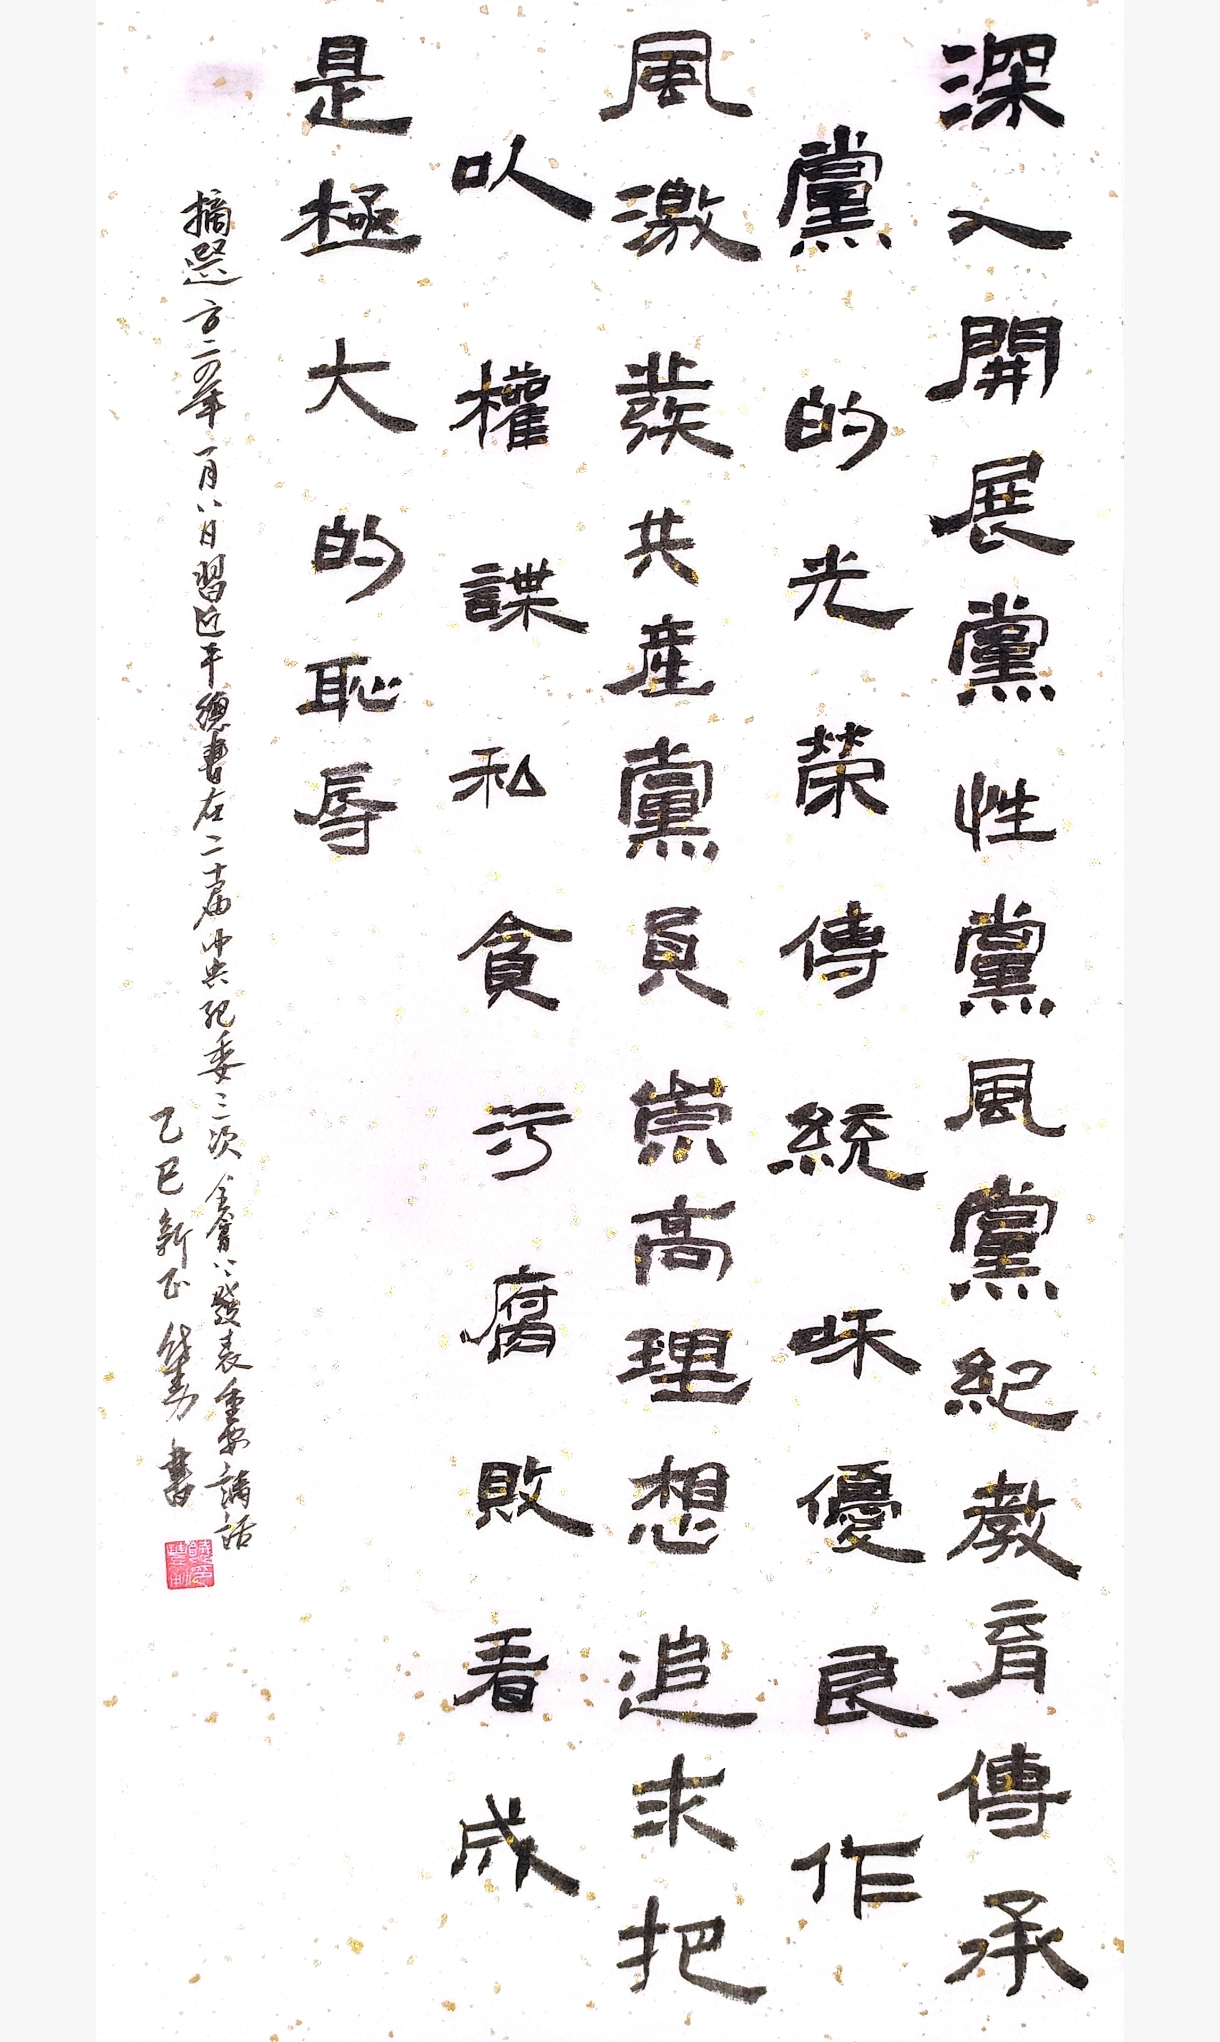 深入開展黨性黨風黨紀教育傳承
黨的光榮傳統和優良作
風激發共產黨員崇高理想追求把
以權謀私貪污腐敗看成
是極大的恥辱
摘選二〇二四年一月八日習近平總書在二十屆中央紀委三次全會上發表重要講話
乙巳新正 書